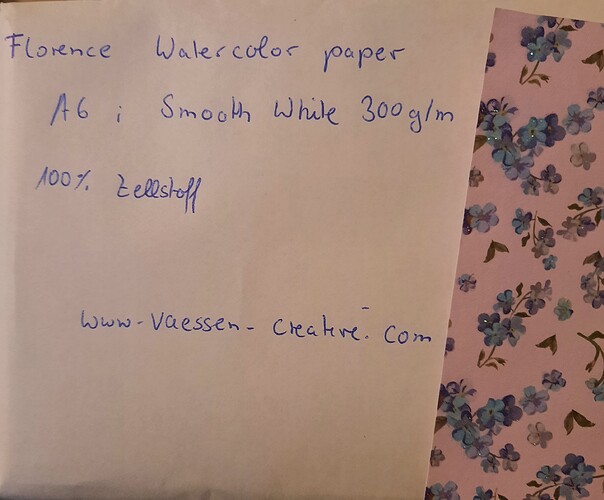 Florence Watercolor paper
A6 ; Smooth White 300g/m
100% Zellstoff
www-vaessen-creative.com